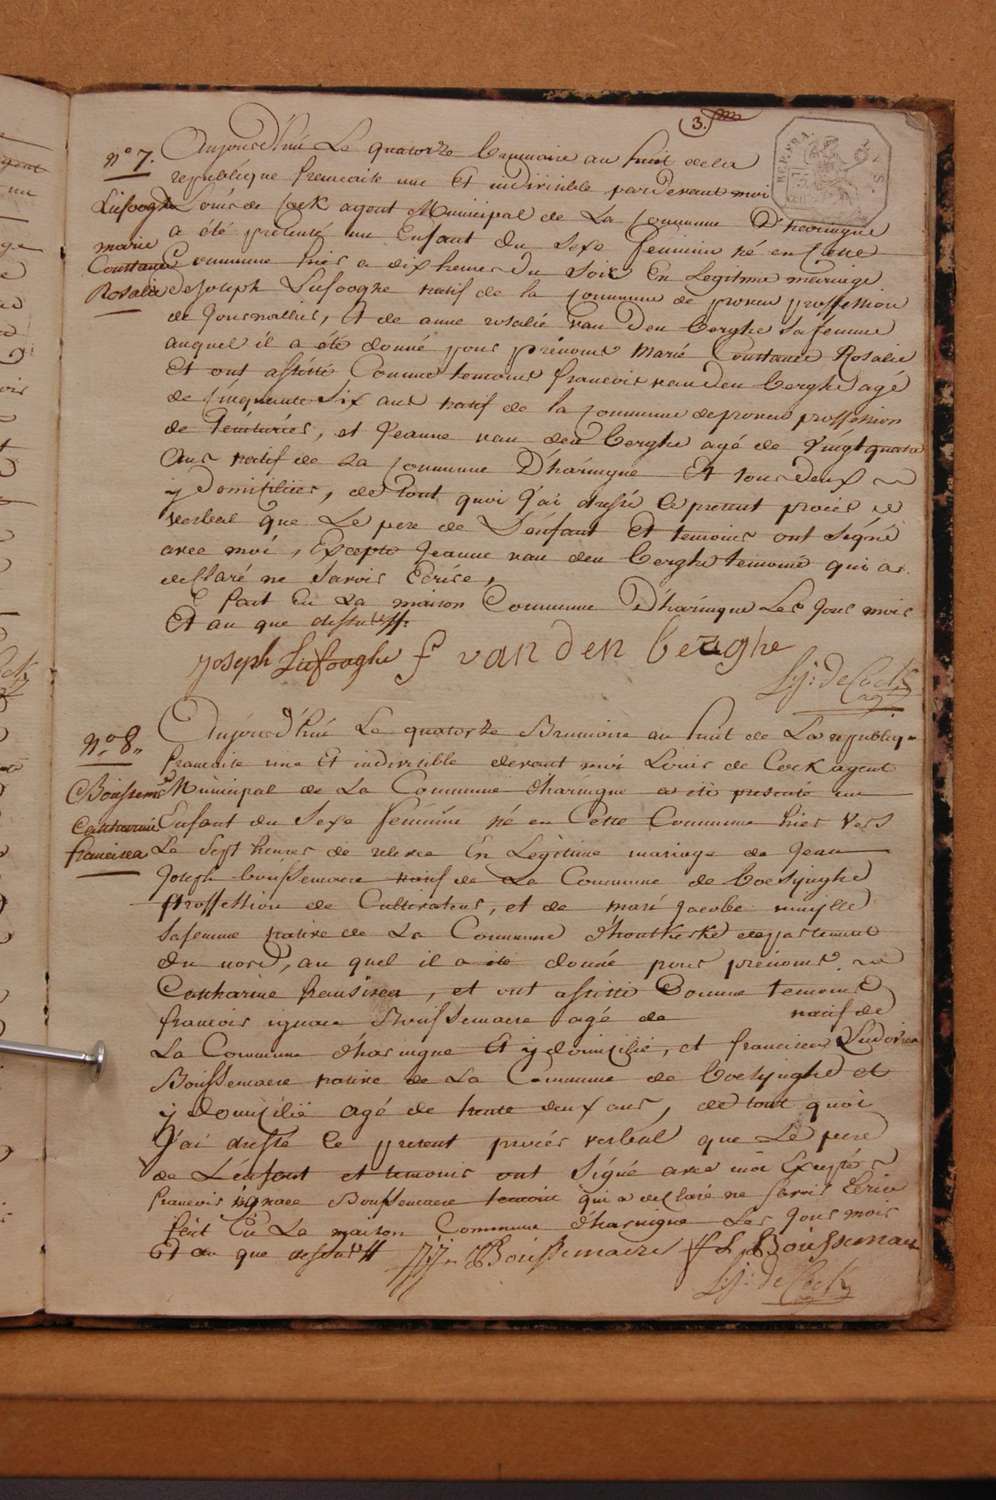 3.
REP. FRA.
n° 7.
Lufooghe
marie
Constance
Rosalie
Aujourd'hui Le quatorze brumaire au huit de la
republique francaise une Et indivisible pardevant moi
Louis de Cock agent Municipal de La commune D'haringue
a été presenté un Enfant du Sexe feminin né en Cette
commune hier a dix heures du Soir En Legitime mariage
de Joseph Lufooghe natif de la commune de proven proffession
de Journallier, Et de anne rosalie van Den berghe Sa femme
auquel il a été donné pour prénoms Marie Constance Rosalie
Et ont assisté Comme temoins francois van Den berghe agé
de Cinquante Six ans natif de la commune de proven proffession
de teinturier, et Jeanne van den berghe agé de vingt quatre
Ans natif de La commune D'haringue Et tous deux
y Domiciliés, de tout quoi J'ai dressé le present procès
verbal que Le pere de L'enfant Et temoins ont Signé
avec moi, Excepté Jeanne van den berghe temoine qui a
declaré ne Savoir Ecrire,
fait En La maison Commune D'haringue Les Jour mois
Et an que dessus
Joseph Lufooghe f van den berghe
L.j: de Cock
ag
n° 8.
Boussemaere
Catharine
francisca
Aujourd'hui Le quatorze Brumaire au huit de La republique
francaise une Et indivisible devant moi Louis de Cock agent
Municipal de La Commune d'haringue a été presenté un
Enfant du Sexe féminin né en Cette Commune hier vers
Le Sept heures de relevée En Légitime mariage de Jean
Joseph boussemaere natif de La Commune de boesynghe
proffession de Cultivateur, et de marie Jacobe
Sa femme native de La Commune d'houtkerke departement
du nord, au quel il a été donné pour prénoms
Catharine fransisca, et ont assisté Comme temoins
francois ignace Boussemaere agé de natif de
La Commune d'haringue Et y domicilié, et francisca Ludovica
Boussemaere native de La Commune de boesynghe et
y domicilié agé de trente deux ans, de tout quoi
J'ai dressé le present procès verbal que Le pere
de L'enfant et temoins ont Signé avec moi Excepté
francois ignace Boussemaere temoin qui a declaré ne Savoir Ecrire
fait En La maison Commune d'haringue Les Jour mois
Et an que dessus J.j. Boussemaere f L Boussemaere
L.j: de Cock